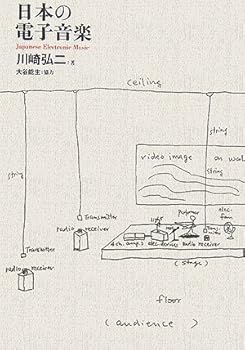 日本の
電子音楽
Japanese Electronic Music
川崎弘二・著
大谷能生・協力
ceiling
string
video image on wall
string
string
light
performer
elec. fan
Transmitter
radio receiver
Transmitter
radio receiver
4 ch. amp.s electronics radio receiver
(stage)
floor
(audience)